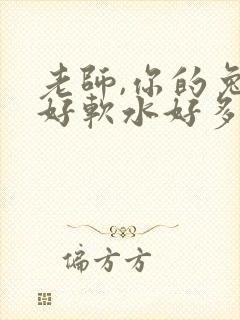 老師,你的兔
好軟水好多
偏方方